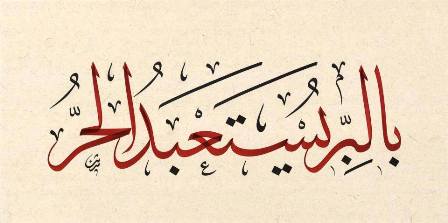 بالبِرِّ يُستَعبَدُ الحُرُّ